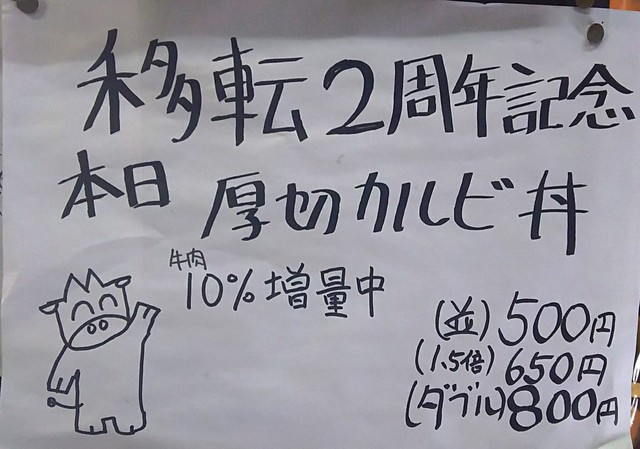 移転2周年記念
本日 厚切カルビ丼
牛肉
10%増量中
(並)500円
(1.5倍)650円
(ダブル)800円